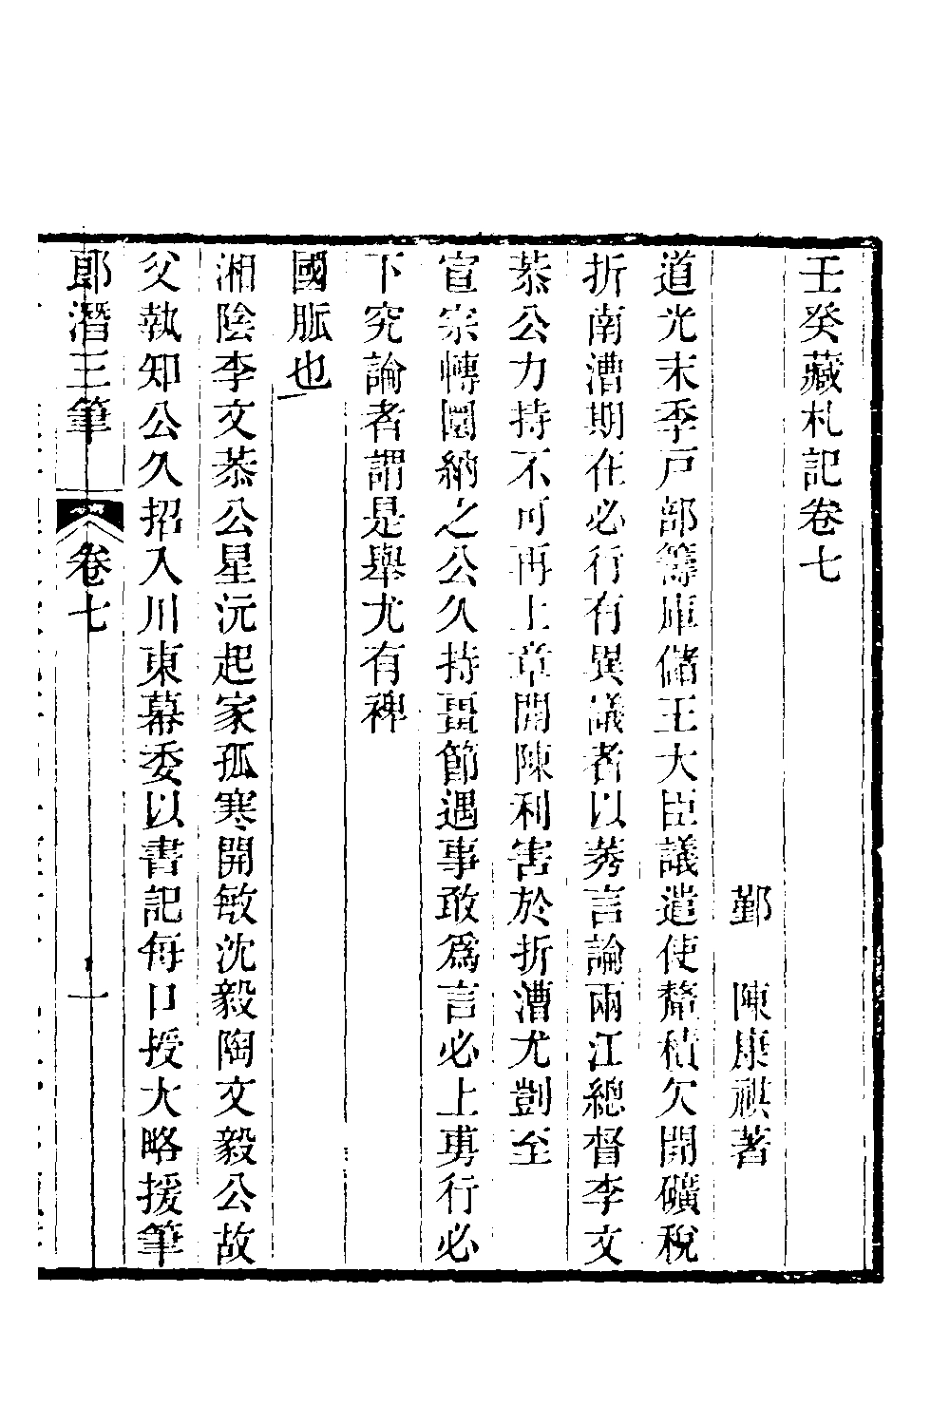 壬癸藏札記卷七
鄞　陳康祺著
道光末季戸部籌庫儲王大臣議遣使釐積欠開礦稅
折南漕期在必行有異議者以莠言論兩江總督李文
恭公力持不可再上章開陳利害於折漕尤剴至
宣宗轉圜納之公久持畺節遇事敢爲言必上旉行必
下究論者謂是舉尤有裨
國脈也
湘陰李文恭公星沅起家孤寒開敏沈毅陶文毅公故
父執知公久招入川東幕委以書記每口授大略援筆
郎潛三筆　卷七　一